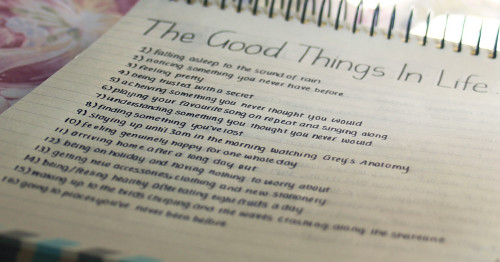 The Good Things In Life
1) falling asleep to the sound of rain
2) noticing something you never have before
3) feeling pretty
4) being trusted with a secret
5) archeiving something you never thought you would
6) playing your favourite song on repeat and singing along
7) understanding something you thought you never would
8) finding something you've lost
9) staying up until 3am in the morning watching Grey's Anatomy
10) feeling genuinely happy for one whole day
11) arriving home after a long day out
12) being on holiday and having nothing to worry about
13) getting new accessories, clothing and new stationery
14) being/feeling healthy after eating eight fruits a day
15) waking up to the birds chirping and the waves crashing along the shoreline
16) going to places you've never been before